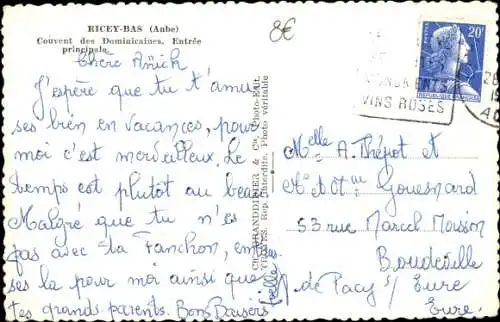 RICEY-BAS (Aube)
Couvent des Dominicaines. Entrée
principale
8€
Chère Anick
J'espère que tu t'amu
ses bien en vacances, pour
moi c'est merveilleux. Le
temps est plutôt au beau
Malgré que tu n'es
pas avec ta Fanchon, embras
ses la pour moi ainsi que
tes grands parents. Bons Baisers
Joelle
& Cie, Photo-Édit.
TROYES. Rep. interdite. Photo véritable
VINS ROSÉS
20F
POSTES
Melle A. Thépot et
Mr et Mme Gouesnard
53 rue Marcel
de Pacy s/ Eure
Eure.